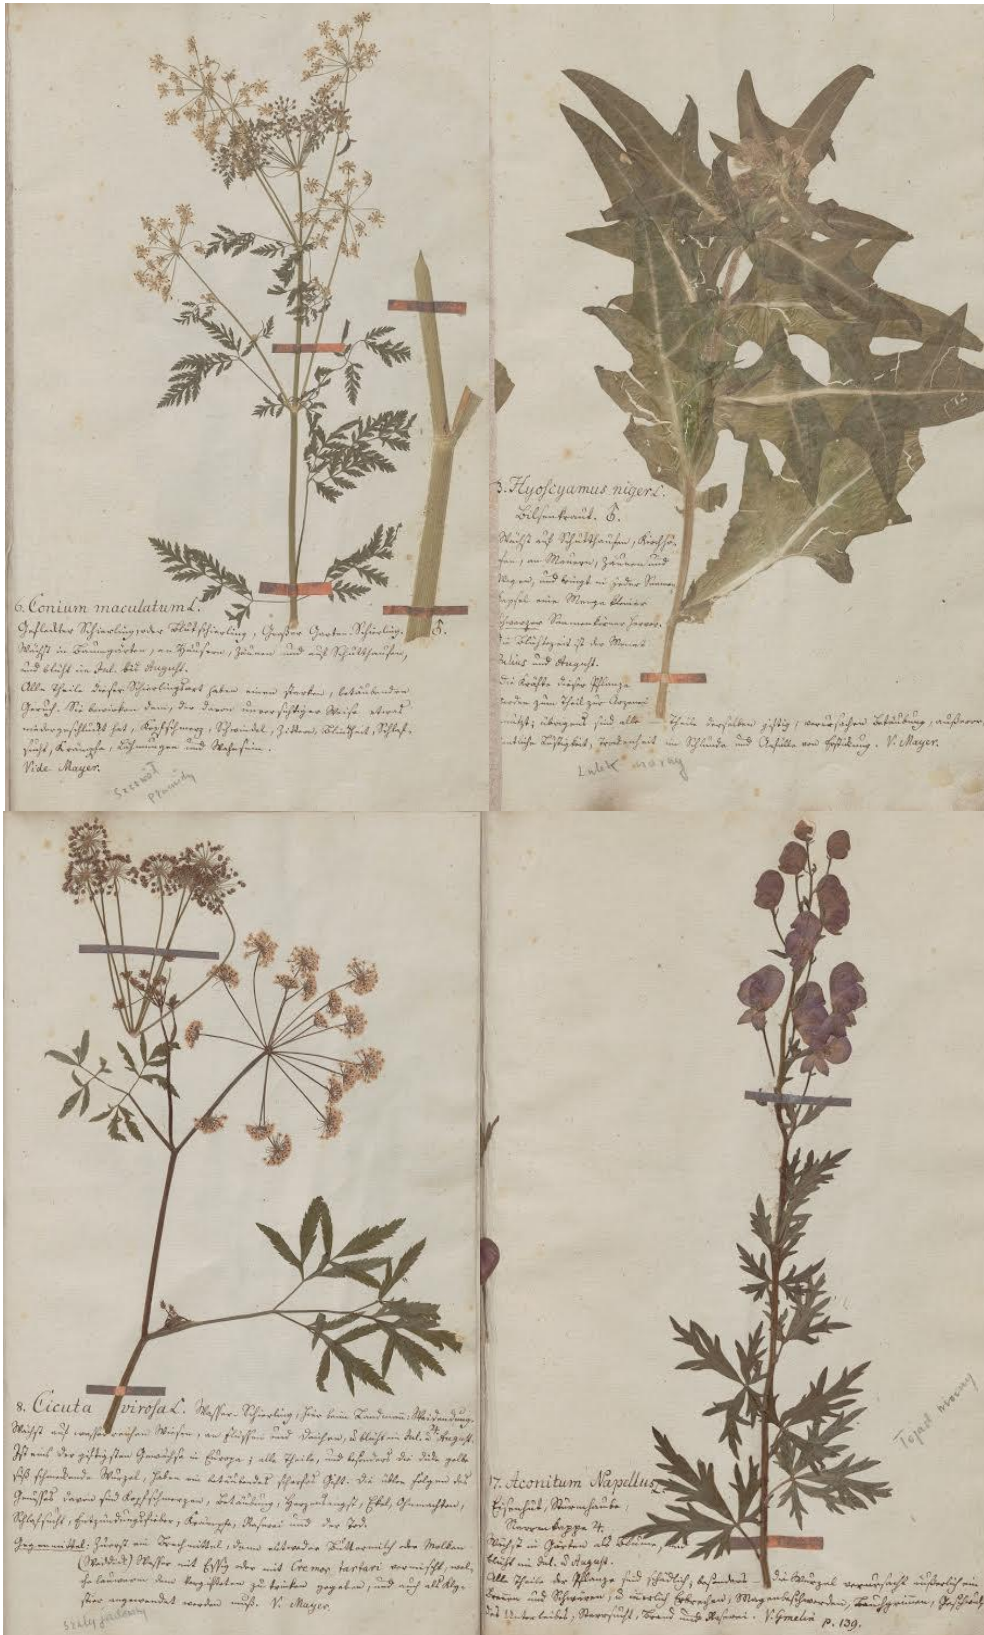 6. Conium maculatum L.
Gefleckter Schierling, oder Blutschierling, Großer Garten-Schierling. ♂.
Wächst in Baumgärten, an Häusern, Zäunen und auf Schutthaufen,
und blüht im Jul. bis August.
Alle Theile dieser Schierlingsart haben einen starken, betäubenden
Geruch. Sie bewirken dem, der davon unvorsichtiger Weise etwas
niedergeschluckt hat, Kopfschmerz, Schwindel, Zittern, Blindheit, Schlaf-
sucht, Krämpfe, Lähmungen und Wahnsinn.
Vide Mayer.
3. Hyoscyamus niger L.
Bilsenkraut. ♂.
Wächst auf Schutthaufen, Kirchhö-
fen, an Mauern, Zäunen und
Wegen, und bringt in jeder Saamen
kapsel eine Menge kleiner
schwarzer Saamenkörner hervor.
Die Blüthezeit ist der Monat
Julius und August.
Die Kräfte dieser Pflanze
werden zum Theil zur Arznei
alle Theile derselben giftig, verursachen Betäubung,
Trockenheit im Schlunde und Anfälle von Erstickung. V. Mayer.
Lulek czarny
8. Cicuta virosa L. Wasser-Schierling, hier beim Landmann
Wächst auf wasserreichen Wiesen, an Flüssen und Teichen, u. blüht im Jul. u. August.
Ist eins der giftigsten Gewächse in Europa; alle Theile, und besonders die dicke gelbe
süß schmeckende Wurzel, haben ein betäubendes scharfes Gift. Die üblen Folgen des
Genusses davon sind Kopfschmerzen, Betäubung, Herzensangst, Ekel, Ohnmachten,
Schlafsucht, Entzündungsfieber, Krämpfe, Raserei und der Tod.
Gegenmittel: Zuerst ein Brechmittel, dann entweder Buttermilch oder Molken
Wasser mit Essig oder mit Cremor tartari vermischt, wel-
che lauwarm dem Vergifteten zu trinken gegeben, und auch als Klys-
tier angewendet werden muß. V. Mayer.
17. Aconitum Napellus L.
Eisenhut, Sturmhaube,
Narrenkappe ♃.
Wächst in Gärten als Blume, und
blüht im Jul. u. August.
Alle Theile der Pflanze sind schädlich, besonders die Wurzel verursacht äußerlich ein
Brennen und Schwären, u. innerlich Erbrechen, Magenbeschwerden, Bauchgrimmen, Geschwulst
des Unterleibes, Brand und Raserei. V. Gmelin p. 139.
Tojad mocny